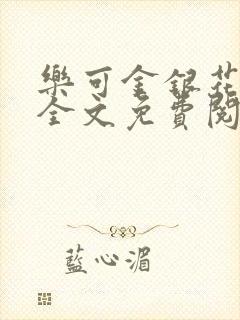 樂可金銀花
全文免費閱
藍心湄